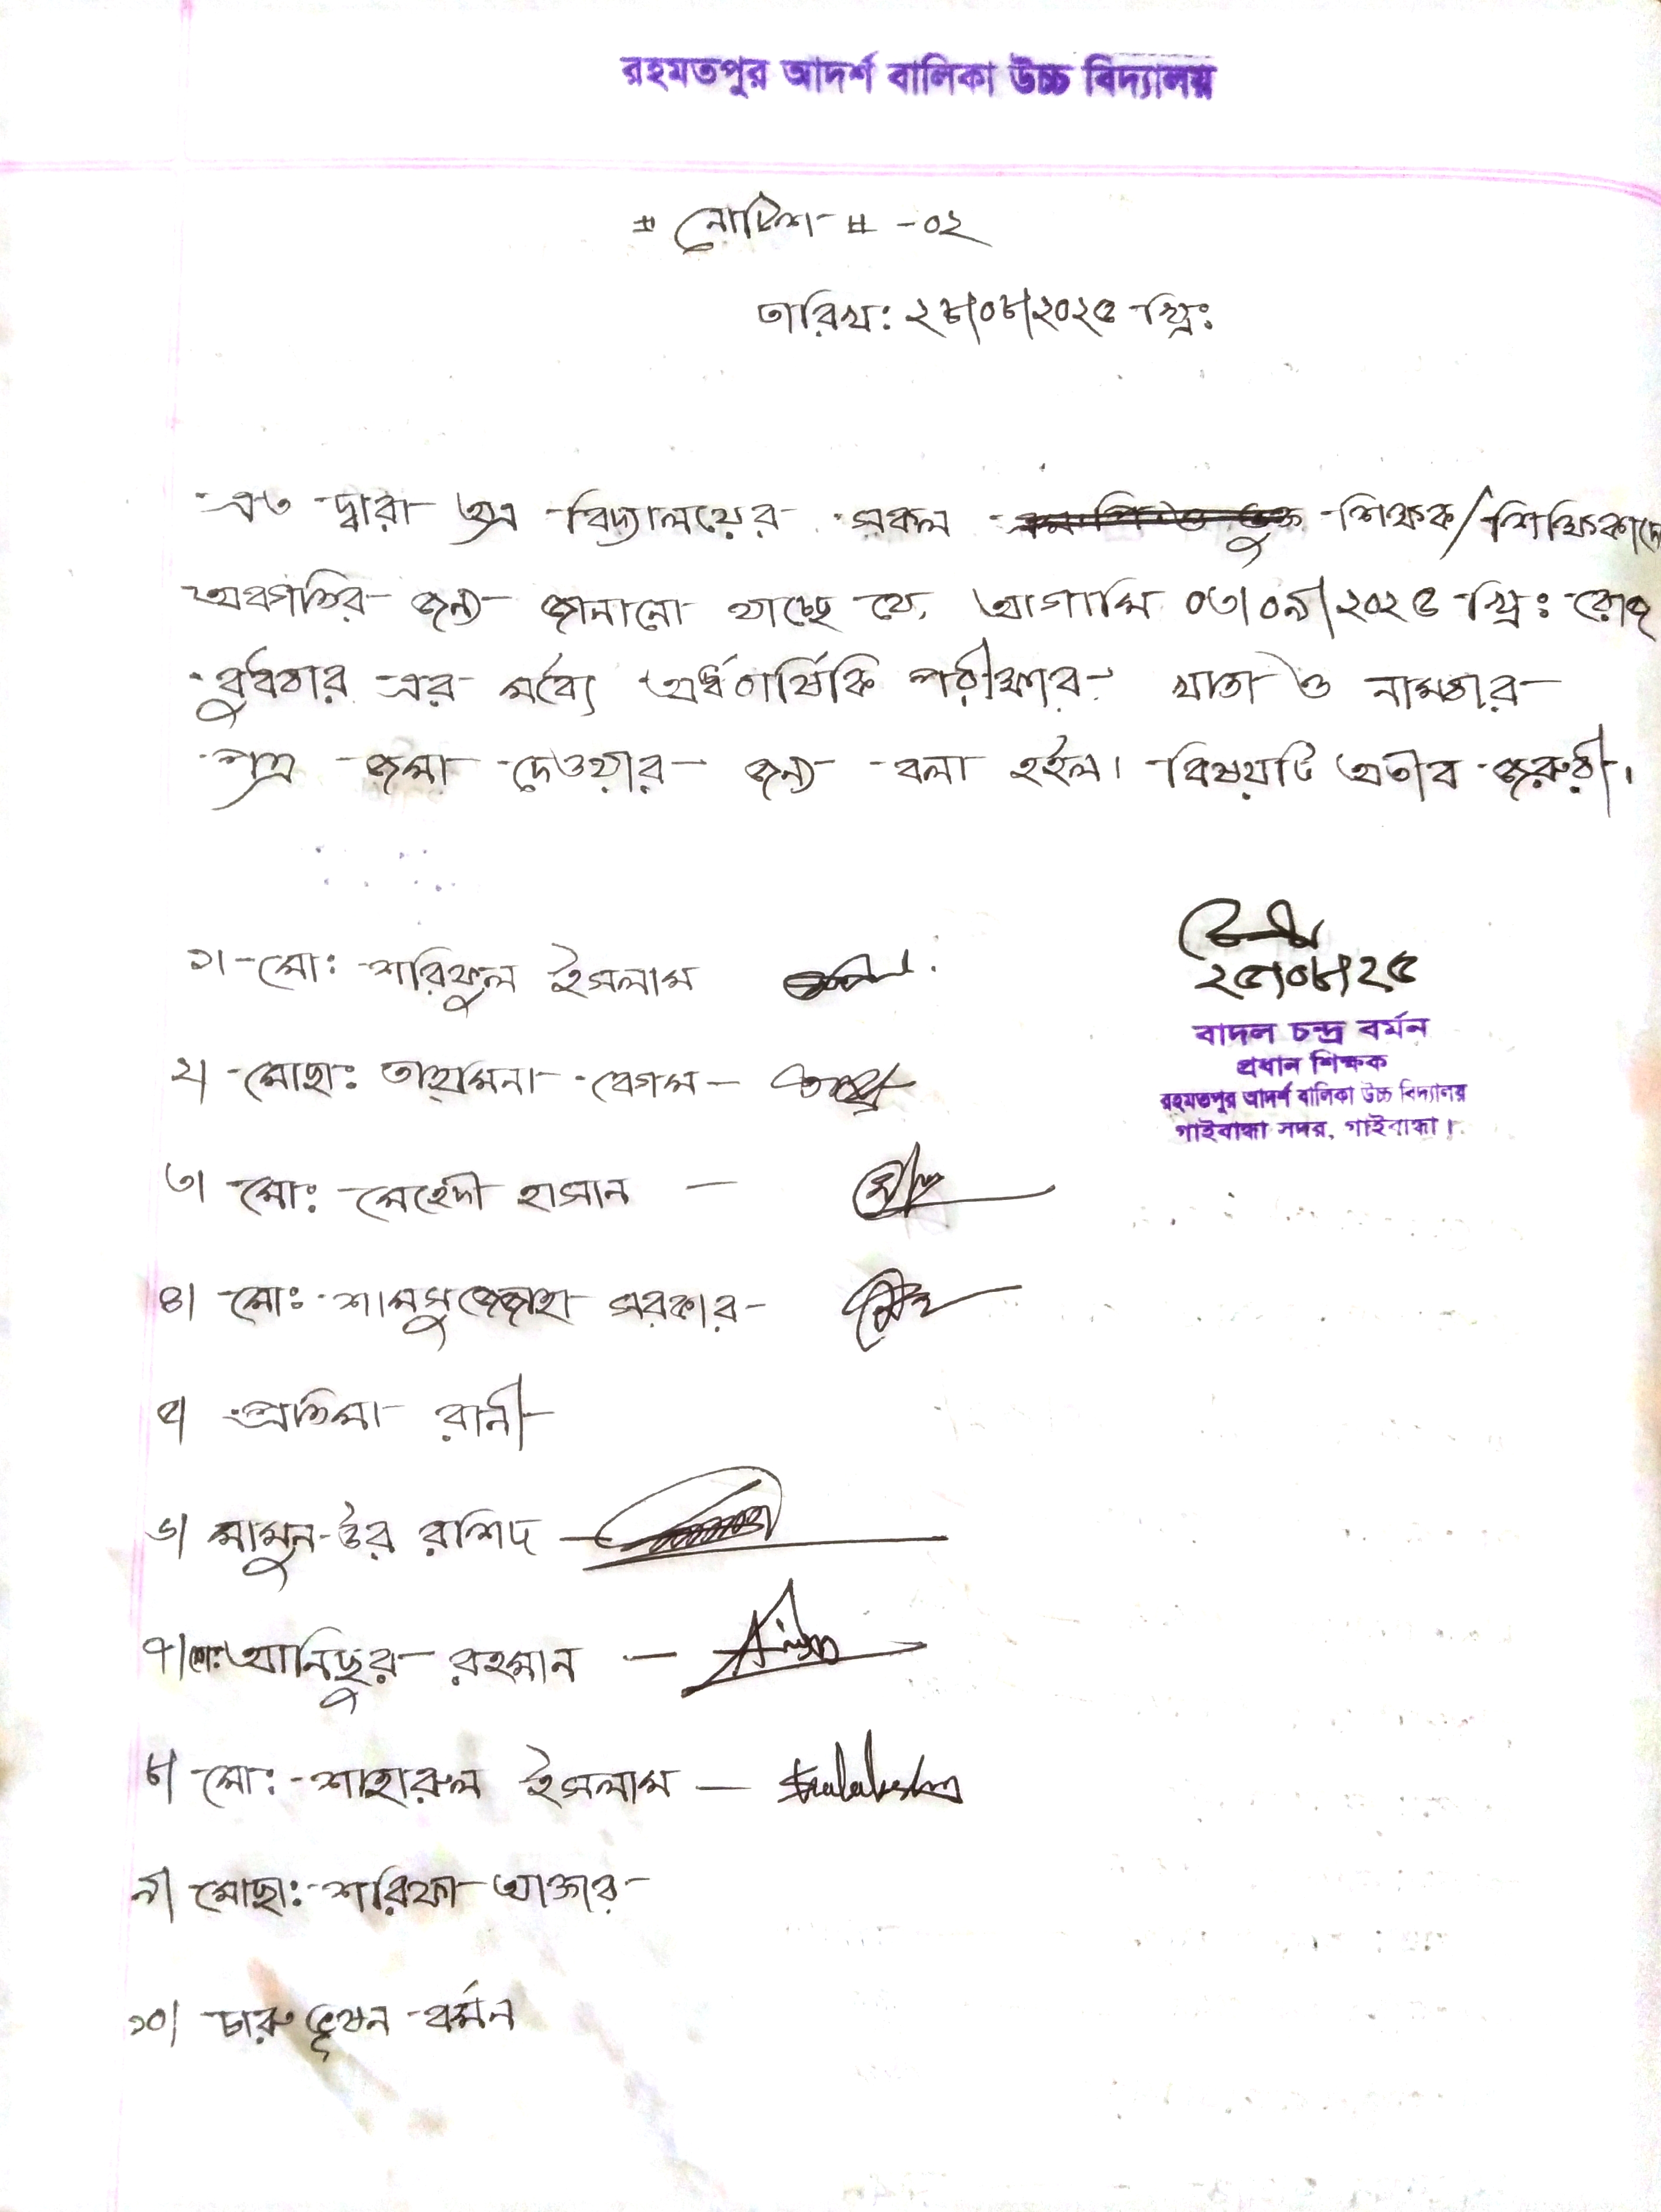 রহমতপুর আদর্শ বালিকা উচ্চ বিদ্যালয়
# নোটিশ # -০২
তারিখ: ২৮/০৮/২০২৫ খ্রিঃ
এত দ্বারা অত্র বিদ্যালয়ের সকল শিক্ষক/শিক্ষিকাদে
অবগতির জন্য জানানো যাচ্ছে যে, আগামি ০৩/০৯/২০২৫ খ্রিঃ রোজ
বুধবার এর মধ্যে অর্ধবার্ষিকি পরীক্ষার খাতা ও নাম্বার
পত্র জমা দেওয়ার জন্য বলা হইল। বিষয়টি অতীব জরুরী।
১। মো: শরিফুল ইসলাম
২৫/০৮/২৫
বাদল চন্দ্র বর্মন
প্রধান শিক্ষক
রহমতপুর আদর্শ বালিকা উচ্চ বিদ্যালয়
গাইবান্ধা সদর, গাইবান্ধা।
২। মোছা: তাহমিনা বেগম -
৩। মো: মেহেদী হাসান -
৪। মো: শামসুজ্জোহা সরকার -
৫। প্রতিমা রানী
৬। মামুন-উর রশিদ
৭। মো: আনিছুর রহমান -
৮। মো: শাহারুল ইসলাম -
৯। মোছা: শরিফা আক্তার
১০। চারু ভূষন বর্মন